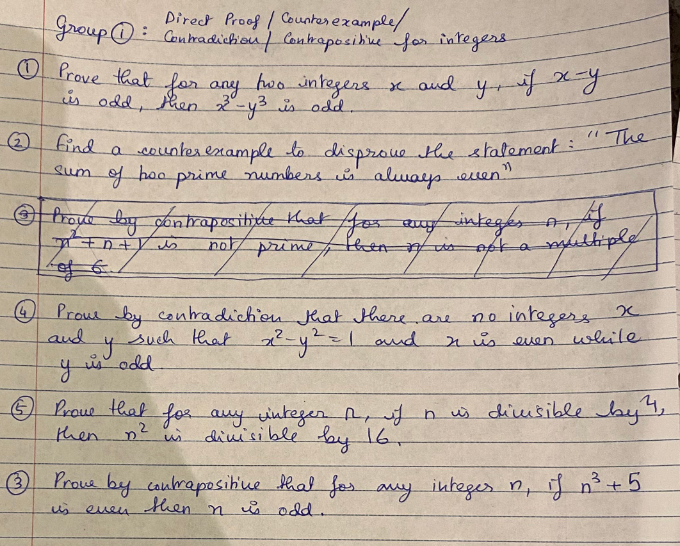 Group ① : Direct Proof / Counterexample/
Contradiction / Contrapositive for integers
① Prove that for any two integers x and y, if x-y
is odd, then x³-y³ is odd.
② Find a counterexample to disprove the statement : "The
sum of two prime numbers is always even"
③ Prove by contrapositive that for any integer n, if
n²+n+1 is not prime, then n is not a multiple
of 6.
④ Prove by contradiction that there are no integers x
and y such that x²-y²=1 and x is even while
y is odd.
⑤ Prove that for any integer n, if n is divisible by 4,
then n² is divisible by 16.
③ Prove by contrapositive that for any integer n, if n³+5
is even then n is odd.